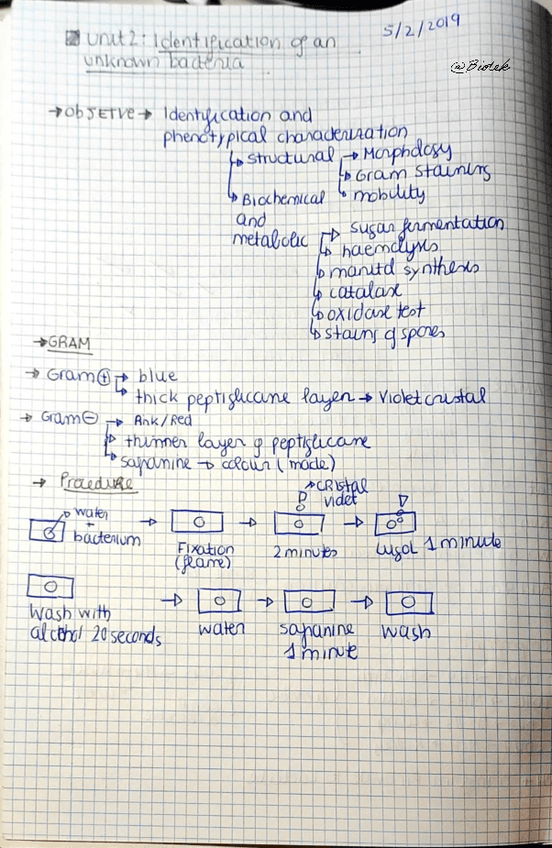 Unit 2: Identification of an
unknown bacteria
5/2/2019
@Biotek
→ OBJETVE → Identification and
phenotypical characterization
↳ structural → Morphology
↳ Gram staining
↳ mobility
↳ Biochemical
and
metabolic → sugar fermentation
↳ haemolysis
↳ manitol synthesis
↳ catalase
↳ oxidase test
↳ stains of spores
→ GRAM
→ Gram ⊕ → blue
↳ thick peptiglicane layer → Violet cristal
→ Gram ⊖ → Pink/Red
↳ thinner layer of peptiglicane
↳ sapanine → colour (made)
→ Procedure
water
+
bacterium
→ Fixation
(flame)
→ 2 minutes
→ CRistal
violet
→ lugol 1 minute
Wash with
alcohol 20 seconds
→ water
→ sapanine
1 minute
→ wash